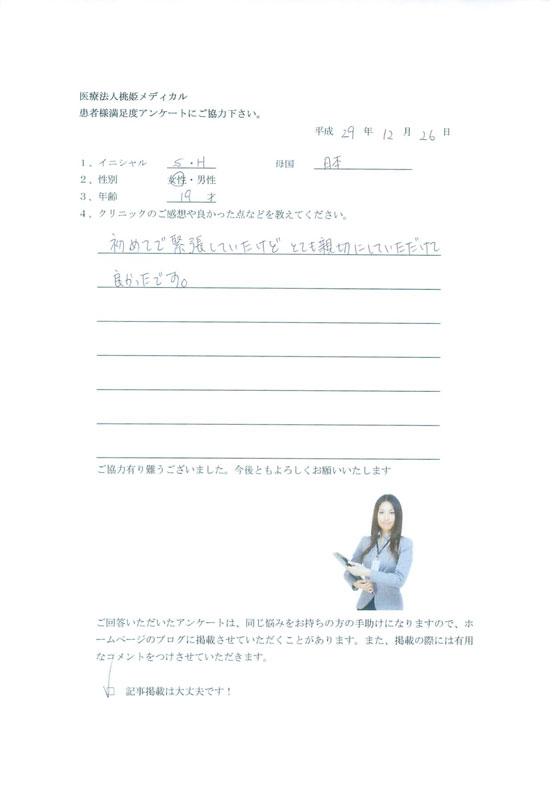 医療法人桃姫メディカル
患者様満足度アンケートにご協力下さい。
平成 29 年 12 月 26 日
1、イニシャル S・H 母国 日本
2、性別 女性・男性
3、年齢 19 才
4、クリニックのご感想や良かった点などを教えてください。
初めてで緊張していたけど とても親切にしていただけて
良かったです。
ご協力有り難うございました。今後ともよろしくお願いいたします
ご回答いただいたアンケートは、同じ悩みをお持ちの方の手助けになりますので、ホ
ームページのブログに掲載させていただくことがあります。また、掲載の際には有用
なコメントをつけさせていただきます。
□ 記事掲載は大丈夫です！